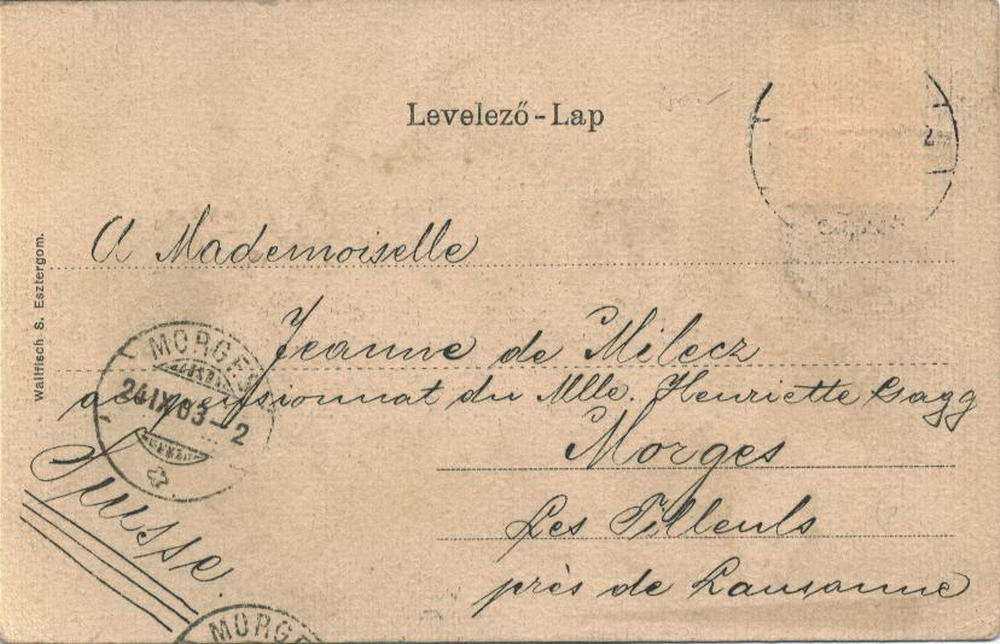 Levelező-Lap
A Mademoiselle
Jeanne de Milecz
au pensionnat du Mlle. Henriette Gagg
Morges
Les Tilleuls
près de Lausanne
Suisse.
Wallfisch S. Esztergom.
MORGES
24 IX 03-2
MORGE